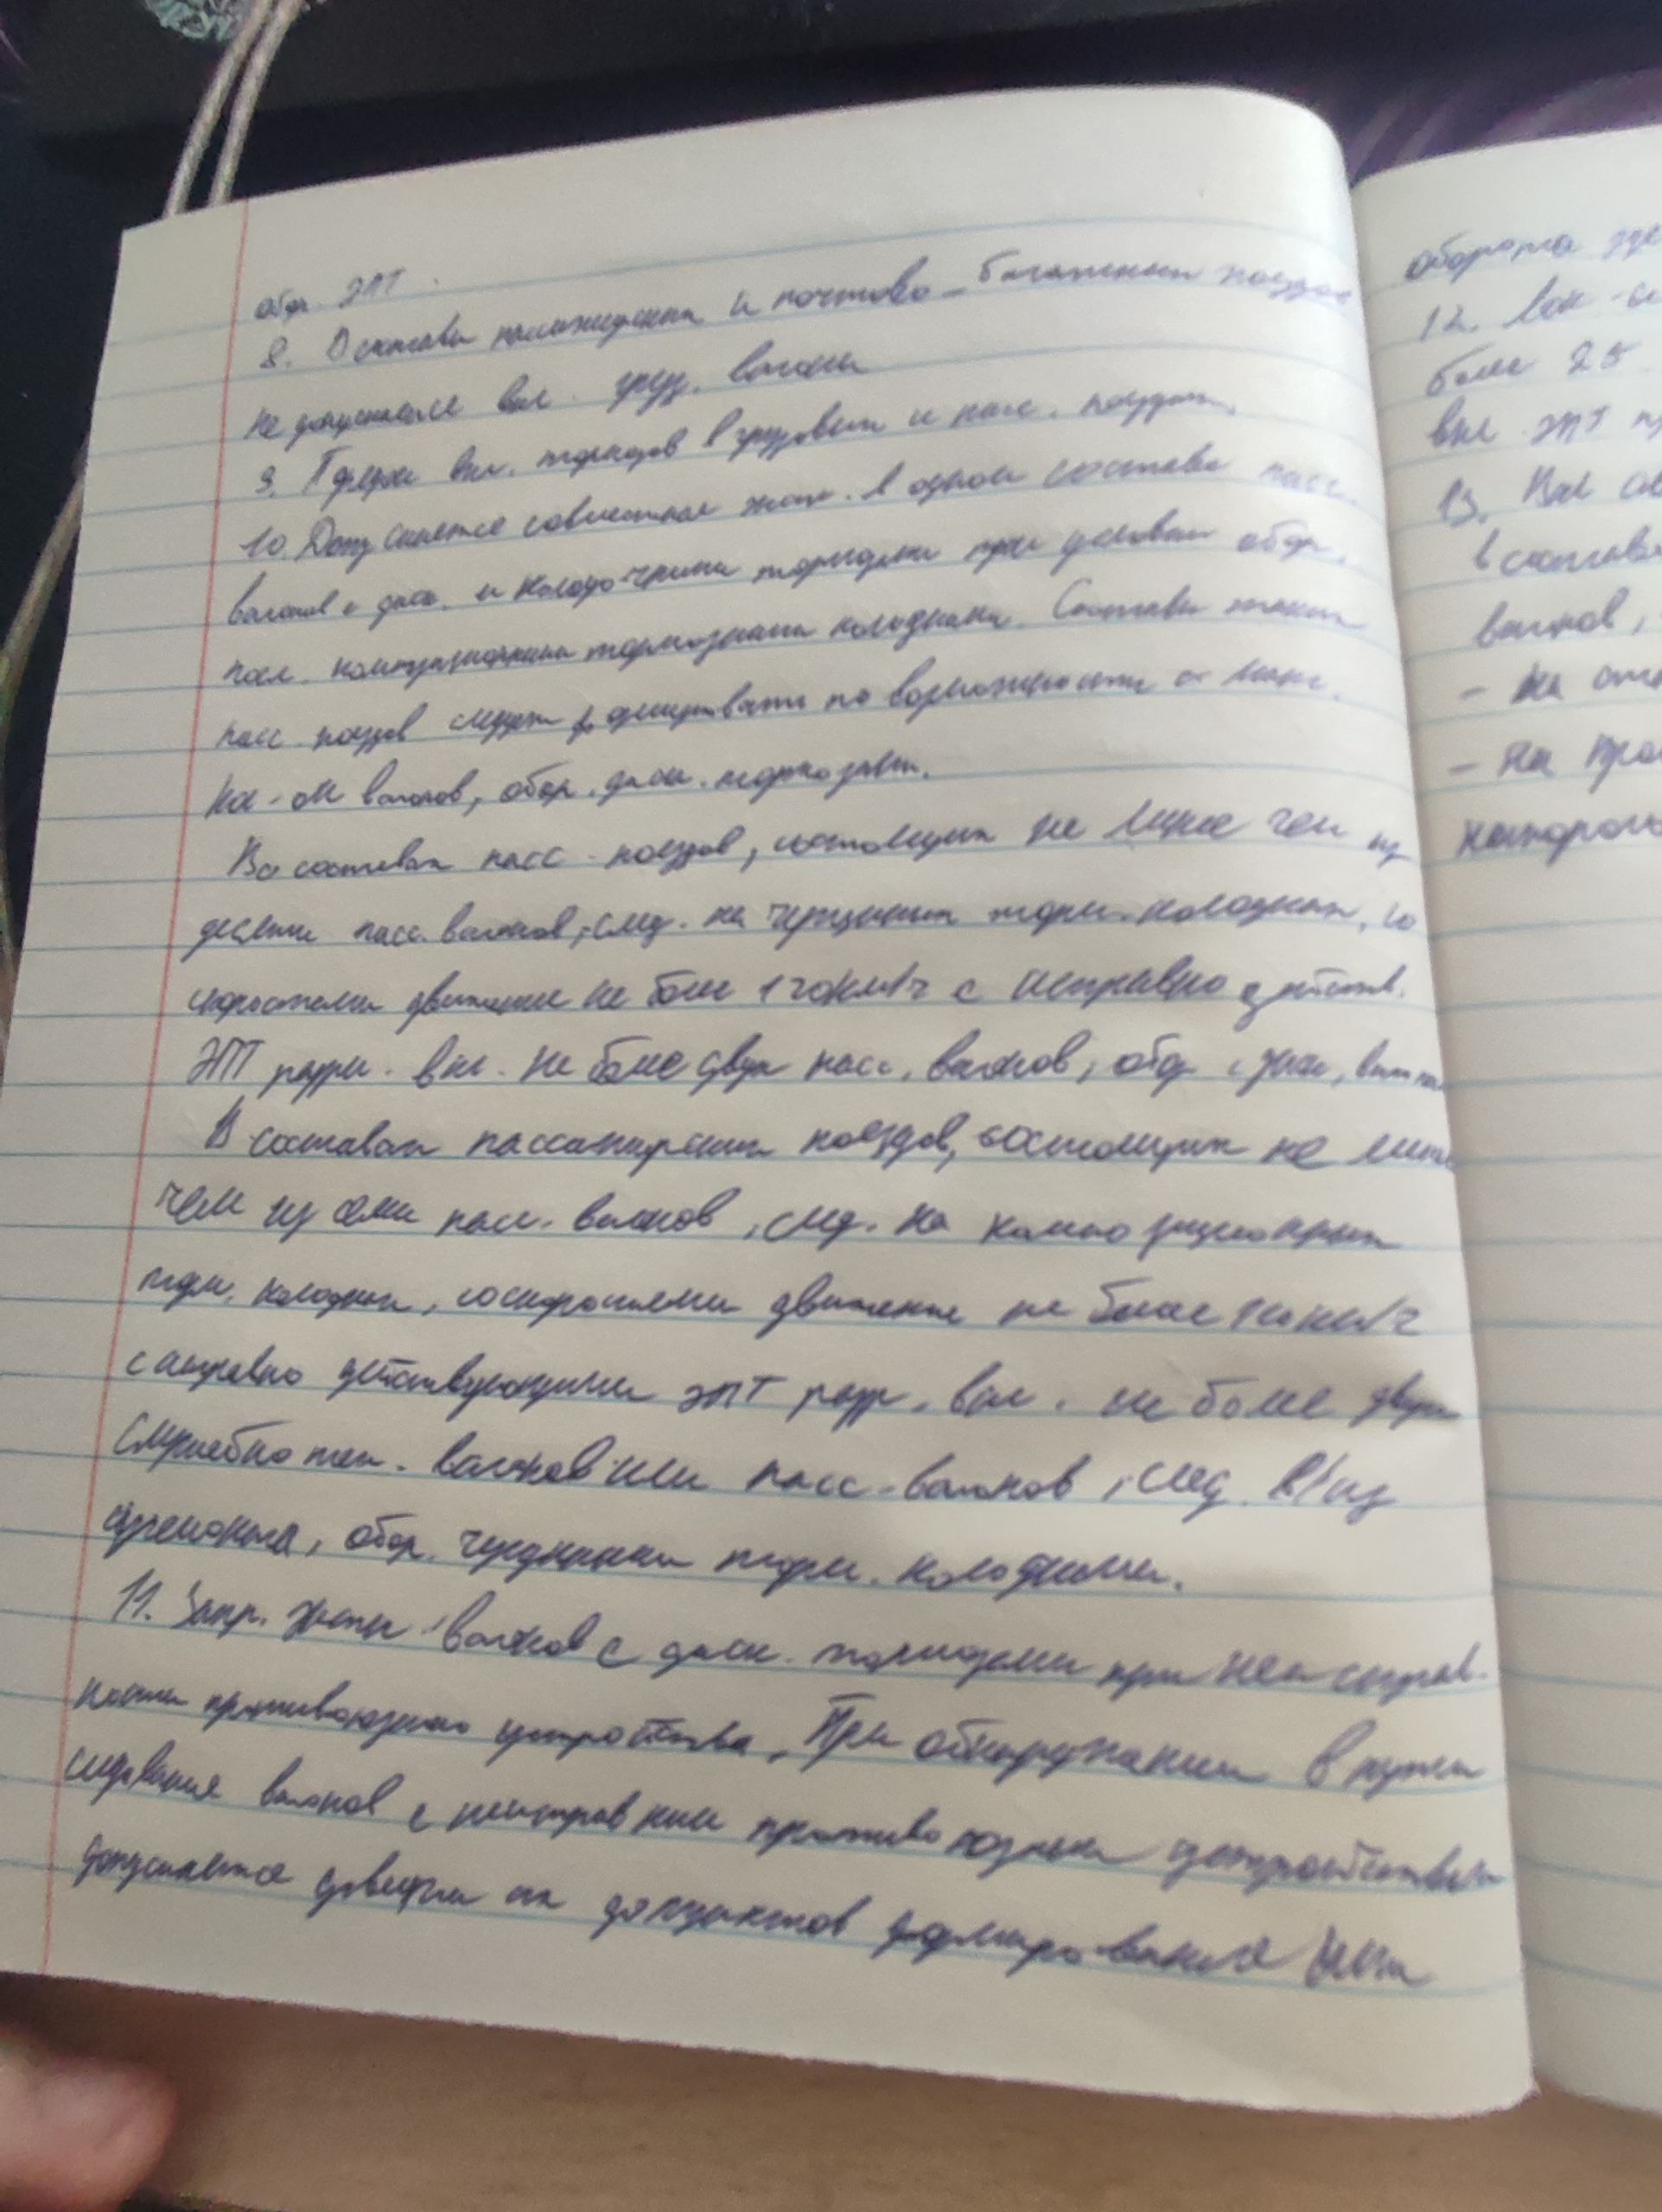 обор. ЭПТ.
8. В составы пассажирских и почтово-багажных поездов
не допускается вкл. груз. вагоны
9. Порядок вкл. тормозов в грузовых и пасс. поездах.
10. Допускается совместная эксп. в одном составе пасс.
вагонов с диск. и колодочными тормозами при условии обор.
посл. композиционными тормозными колодками. Составы таких
пасс. поездов следует формировать по возможности с макс.
кол-ом вагонов, обор. диск. тормозами.
Во составах пасс. поездов, состоящих не менее чем из
десяти пасс. вагонов, след. на чугунных торм. колодках, со
скоростями движения не более 120км/ч с исправно действ.
ЭПТ разр. вкл. не более двух пасс. вагонов, обор
В составах пассажирских поездов, состоящих не менее
чем из семи пасс. вагонов, след. на композиционных
торм. колодках, со скоростями движения не более км/ч
с исправно действующими ЭПТ разр. вкл. не более двух
служебно тех. вагонов или пасс-вагонов, след. в/из
ремонта, обор. чугунными торм. колодками.
11. Запр. экспл. вагонов с диск. тормозами при неисправ-
ности противоюзного устройства. При обнаружении в пути
следования вагонов с неисправным противоюзным устройством
допускается довезти их до пунктов формирования или
оборота
12.
более 25
вкл. ЭПТ
13.
в составе
вагонов,
- на
- на
которого